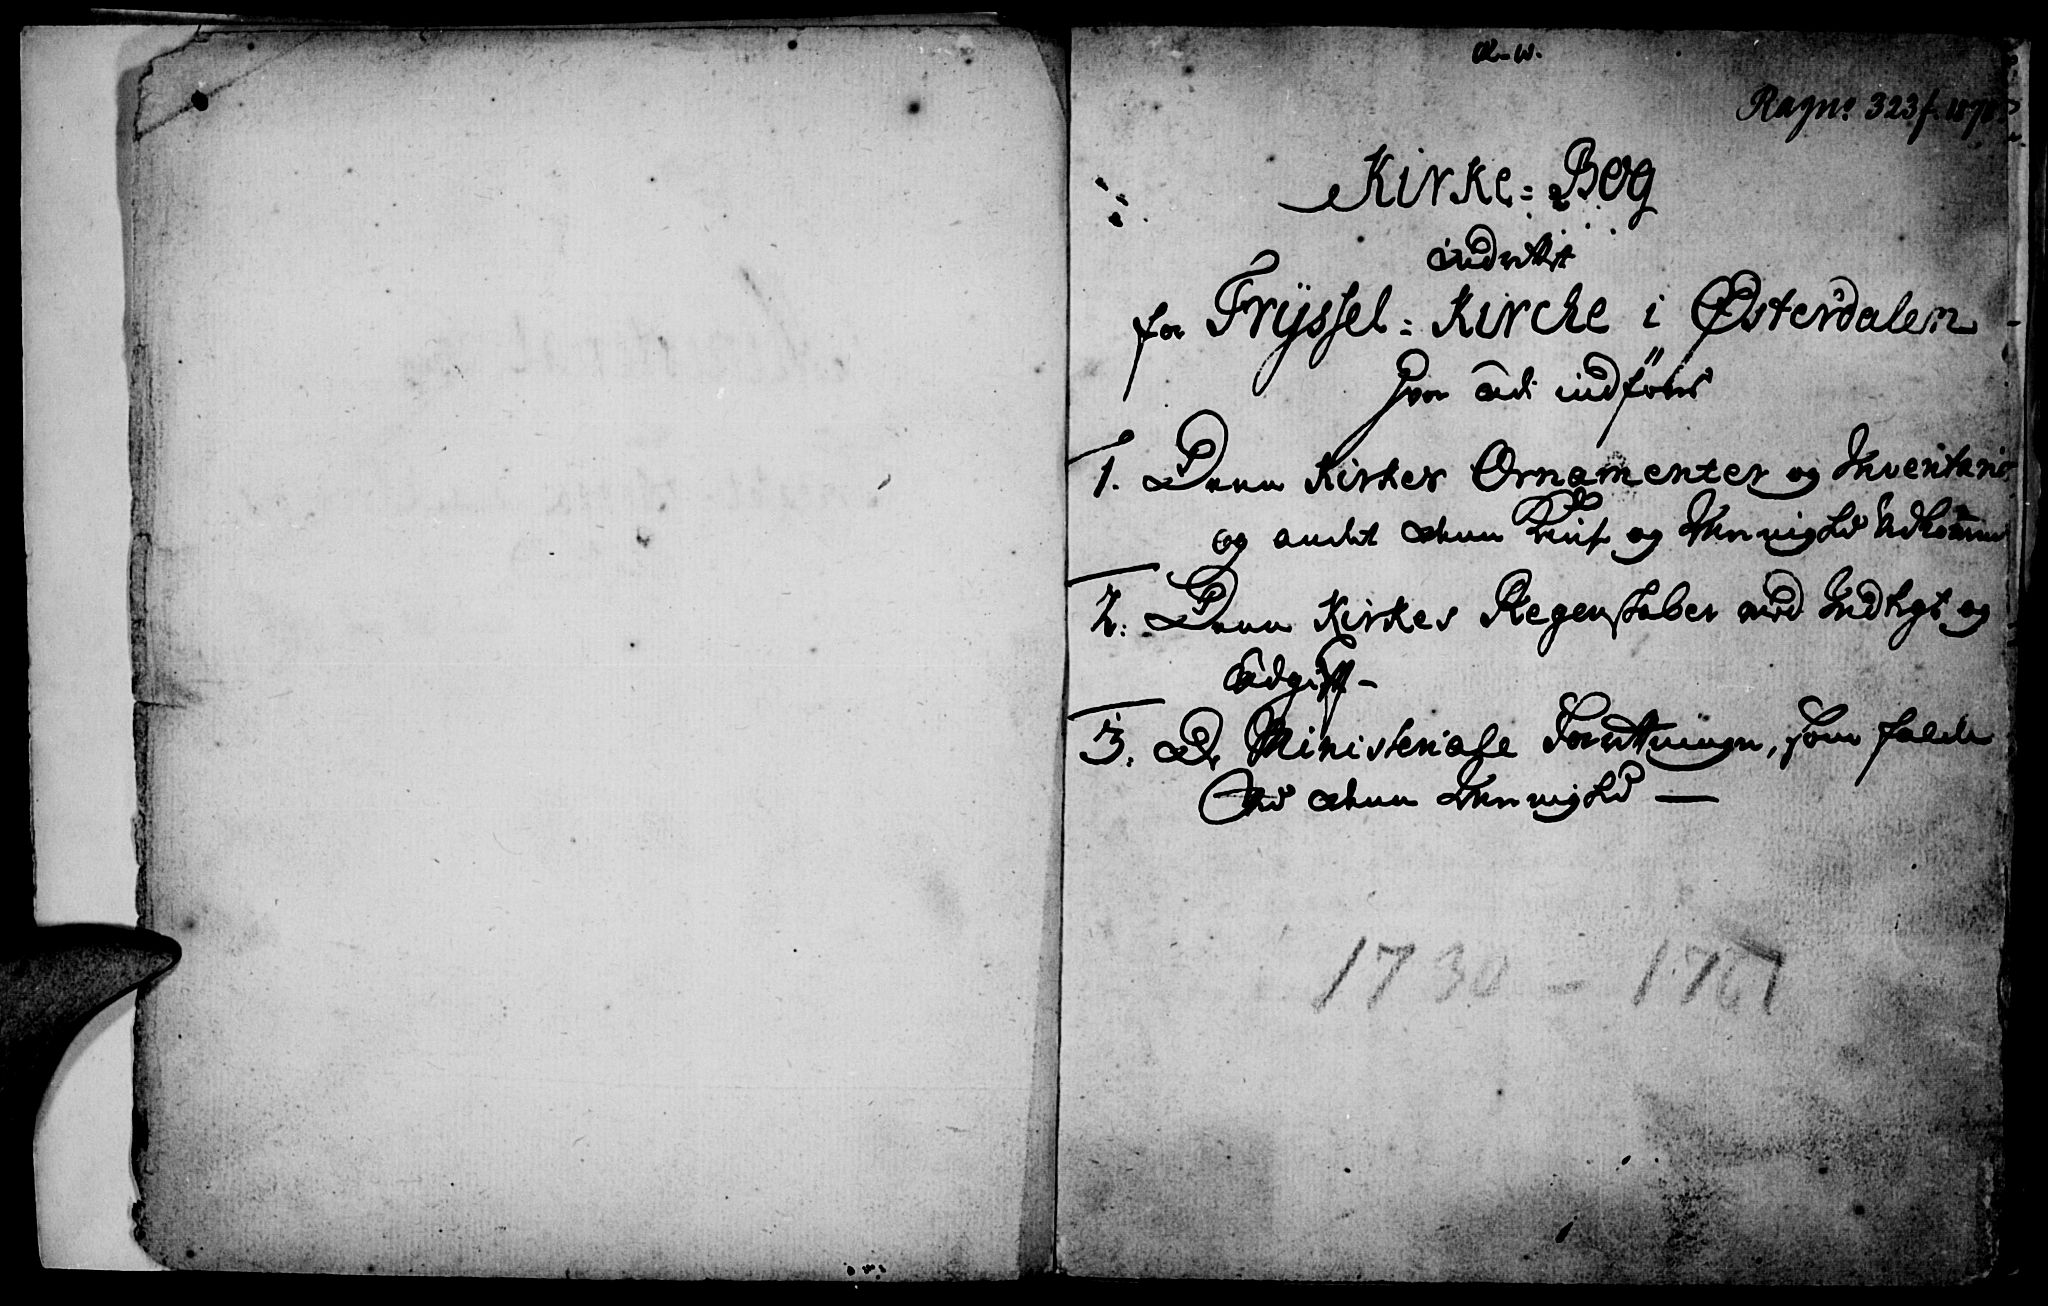 Ragn: 323 f. 187
Kirke=Bog
indrettet
for Tryssel=Kirche i Østerdalen
Hvor udi indføres
1. Denne Kirkes Ornamenter og Inventario
og andet denne og Menighed
2. Denne Kirkes Regenskaber med Indtegt og
Udgift-
3. De Ministeriale Forretninger, som falde
Ved denne Menighed —
1730 - 1767